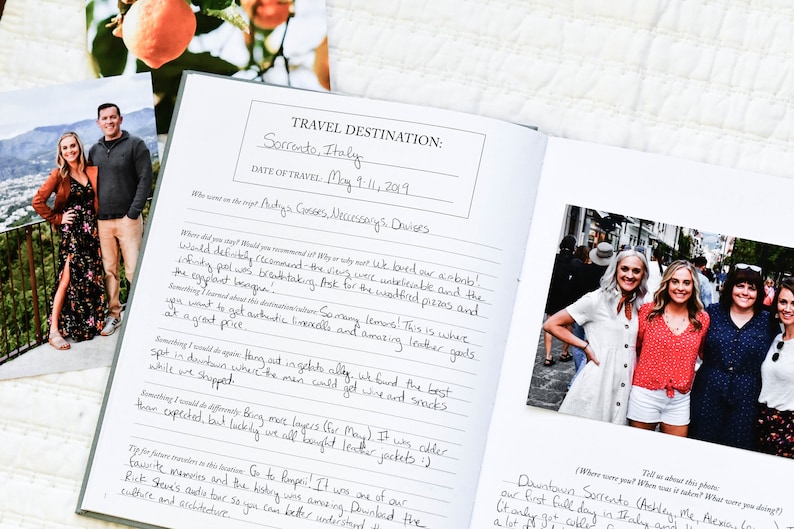 TRAVEL DESTINATION:
Sorrento, Italy
DATE OF TRAVEL: May 9-11, 2019
Who went on the trip? Autrys, Gosses, Neccessarys, Davises
Where did you stay? Would you recommend it? Why or why not? We loved our airbnb!
Would definitely recommend - the views were unbelievable and the
infinity pool was breathtaking. Ask for the woodfired pizzas and
the eggplant lasagna!
Something I learned about this destination/culture: So many lemons! This is where
you want to get authentic limoncello and amazing leather goods
at a great price.
Something I would do again: Hang out in gelato alley. We found the best
spot in downtown where the men could get wine and snacks
while we shopped.
Something I would do differently: Bring more layers (for May). It was colder
than expected, but luckily we all bought leather jackets :)
Tip for future travelers to this location: Go to Pompeii! It was one of our
favorite memories and the history was amazing. Download the
Rick Steve's audio tour so you can better understand the
culture and architecture.
Tell us about this photo:
(Where were you? When was it taken? What were you doing?)
Downtown Sorrento (Ashley, Me, Alexis,
our first full day in Italy and
(it only got colder
a lot of